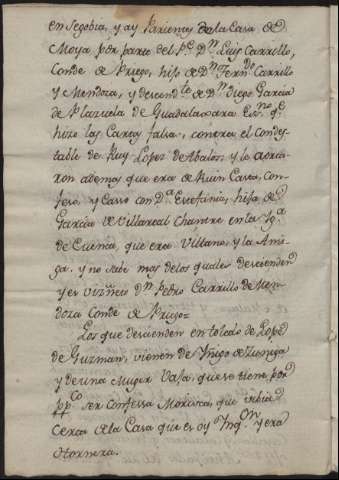 en Segobia, y ay Parientes de la Casa de
Moya por parte del Pe. Dn. Luis Carrillo,
Conde de Priego, hijo de Dn. Ferndo. Carrillo
y Mendoza, y descendte. de Dn. Diego Garcia
de Plazuela de Guadalaxara Essno. qe.
hizo las Cartas falsas, contra el Condes-
table de Ruy Lopez de Abalos, y le
ron ademas que era de Ruin Casta, con-
feso, y Casso con Da. Estefania, hija de
Garcia de Villareal Chantre en la Yga.
de Cuenca, que era Villano, y la Ami-
ga, y no sabe mas de los quales descienden
y es vizneto Dn. Pedro Carrillo de Men
doza Conde de Priego=
Los que descienden en toledo de Lope
de Guzman, vienen de Yñigo de Zuniga
y de una Muger Vaja, que se tiene por
ppco. ser confessa Morisca, que vibia
Cerca de la Casa que es oy Ynqon. y era
Hornera.